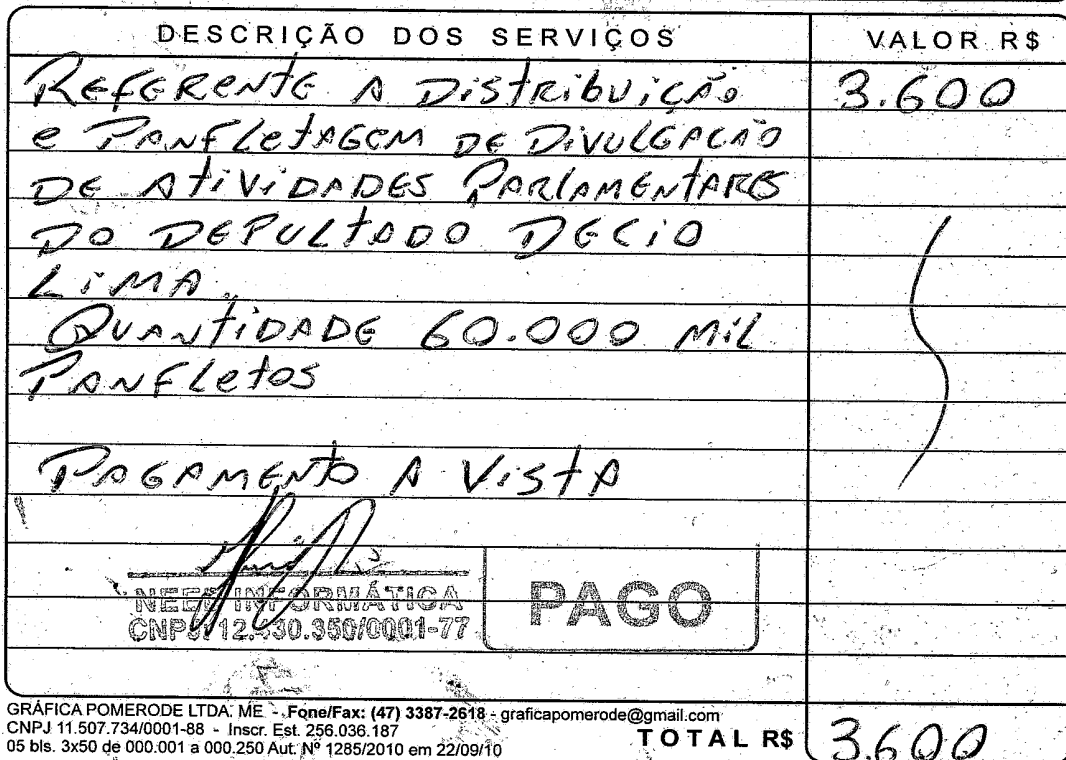 DESCRIÇÃO DOS SERVIÇOS VALOR R$
REFERENTE A DistRibuiçÃo 3.600
e PANFLetAGEM DE DIVULGAÇÃO
DE AtiViDADES PARLAMENtARES
DO DEPULtADO DECIO
LiMA.
QUANtiDADE 60.000 Mil
PANFLetos
PAGAMENTO A VistA
NEER INFORMÁTICA
CNPJ 12.430.350/0001-77
PAGO
GRÁFICA POMERODE LTDA. ME - Fone/Fax: (47) 3387-2618 - graficapomerode@gmail.com
CNPJ 11.507.734/0001-88 - Inscr. Est. 256.036.187
05 bls. 3x50 de 000.001 a 000.250 Aut. Nº 1285/2010 em 22/09/10
TOTAL R$ 3.600